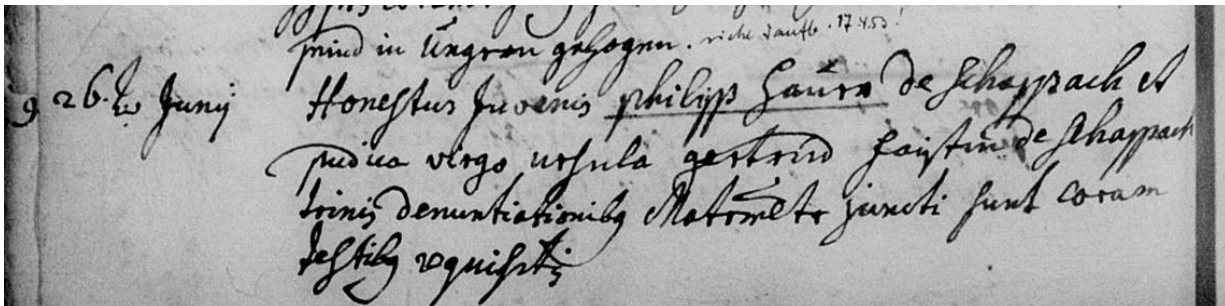 sind in Ungren gezogen. siehe Taufb. 17
9 26. Junij Honestus Juvenis philipp Haurn de Schappach et
pudica virgo ursula gertrud faistin de schappach
trinis denuntiationibq Matrimo juncti sunt coram
testibq requisitis